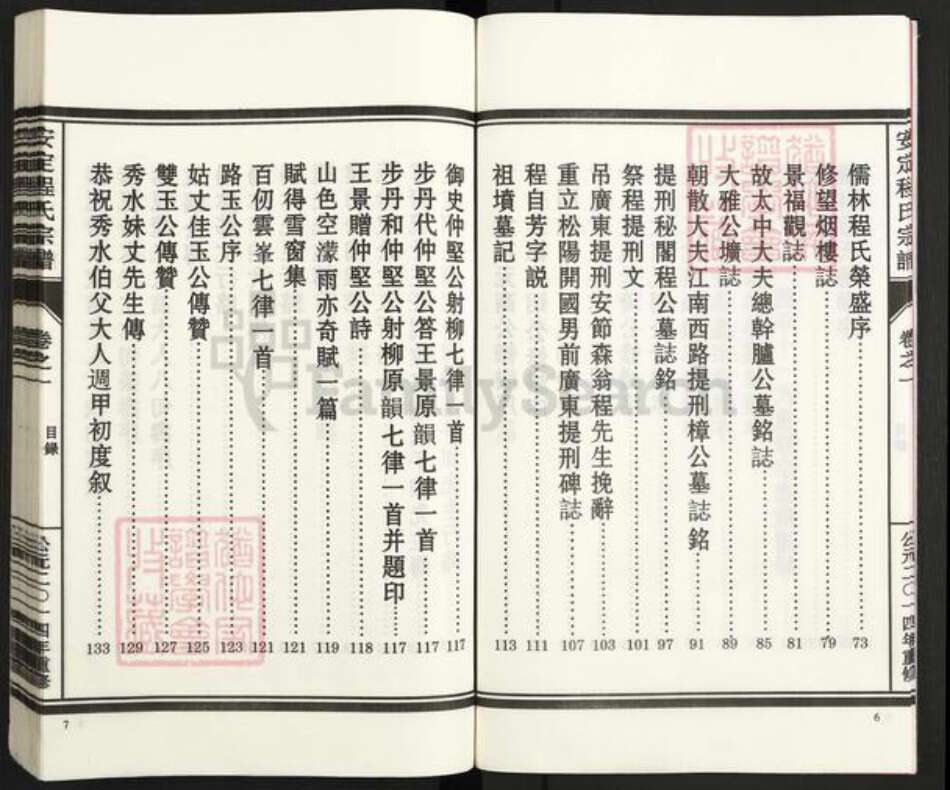 安定程氏宗譜
卷之一
公元二〇一四年重修
6
儒林程氏榮盛序 73
修望烟樓誌 79
景福觀誌 81
故太中大夫總幹臚公墓銘誌 85
大雅公壙誌 89
朝散大夫江南西路提刑樟公墓誌銘 91
提刑秘閣程公墓誌銘 97
祭程提刑文 101
吊廣東提刑安節森翁程先生挽辭 103
重立松陽開國男前廣東提刑碑誌 107
程自芳字説 111
祖墳墓記 113
御史仲堅公射柳七律一首 117
步丹代仲堅公答王景原韻七律一首 117
步丹和仲堅公射柳原韻七律一首并題印 117
王景贈仲堅公詩 118
山色空濛雨亦奇賦一篇 119
賦得雪窗集 121
百仞雲峯七律一首 121
路玉公序 123
姑丈佳玉公傳贊 125
雙玉公傳贊 127
秀水妹丈先生傳 129
恭祝秀水伯父大人週甲初度叙 133
安定程氏宗譜
卷之一
目錄
公元二〇一四年重修
7
FamilySearch